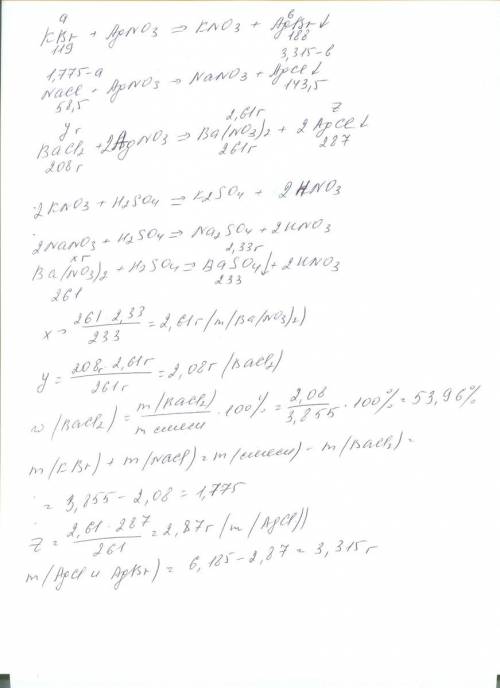 a в
KBr + AgNO3 ⇒ KNO3 + AgBr↓
119 188
1,775-a 3,315-в
NaCl + AgNO3 → NaNO3 + AgCl↓
58,5 143,5
y г 2,61г z
BaCl2 + 2AgNO3 ⇒ Ba(NO3)2 + 2AgCl↓
208г 261г 287
2KNO3 + H2SO4 = K2SO4 + 2HNO3
2NaNO3 + H2SO4 ⇒ Na2SO4 + 2HNO3
x г 2,33г
Ba(NO3)2 + H2SO4 ⇒ BaSO4↓ + 2HNO3
261 233
x = 261·2,33/233 = 2,61г /m/Ba(NO3)2)
y = 208г·2,61г/261г = 2,08г /BaCl2)
w/BaCl2) = m/BaCl2)/m смеси · 100% = 2,08/3,855 · 100% = 53,96%
m/KBr) + m/NaCl) = m(смеси) - m/BaCl2) =
= 3,855 - 2,08 = 1,775
z = 2,61·287/261 = 2,87г /m/AgCl))
m/AgCl и AgBr) = 6,185 - 2,87 = 3,315г